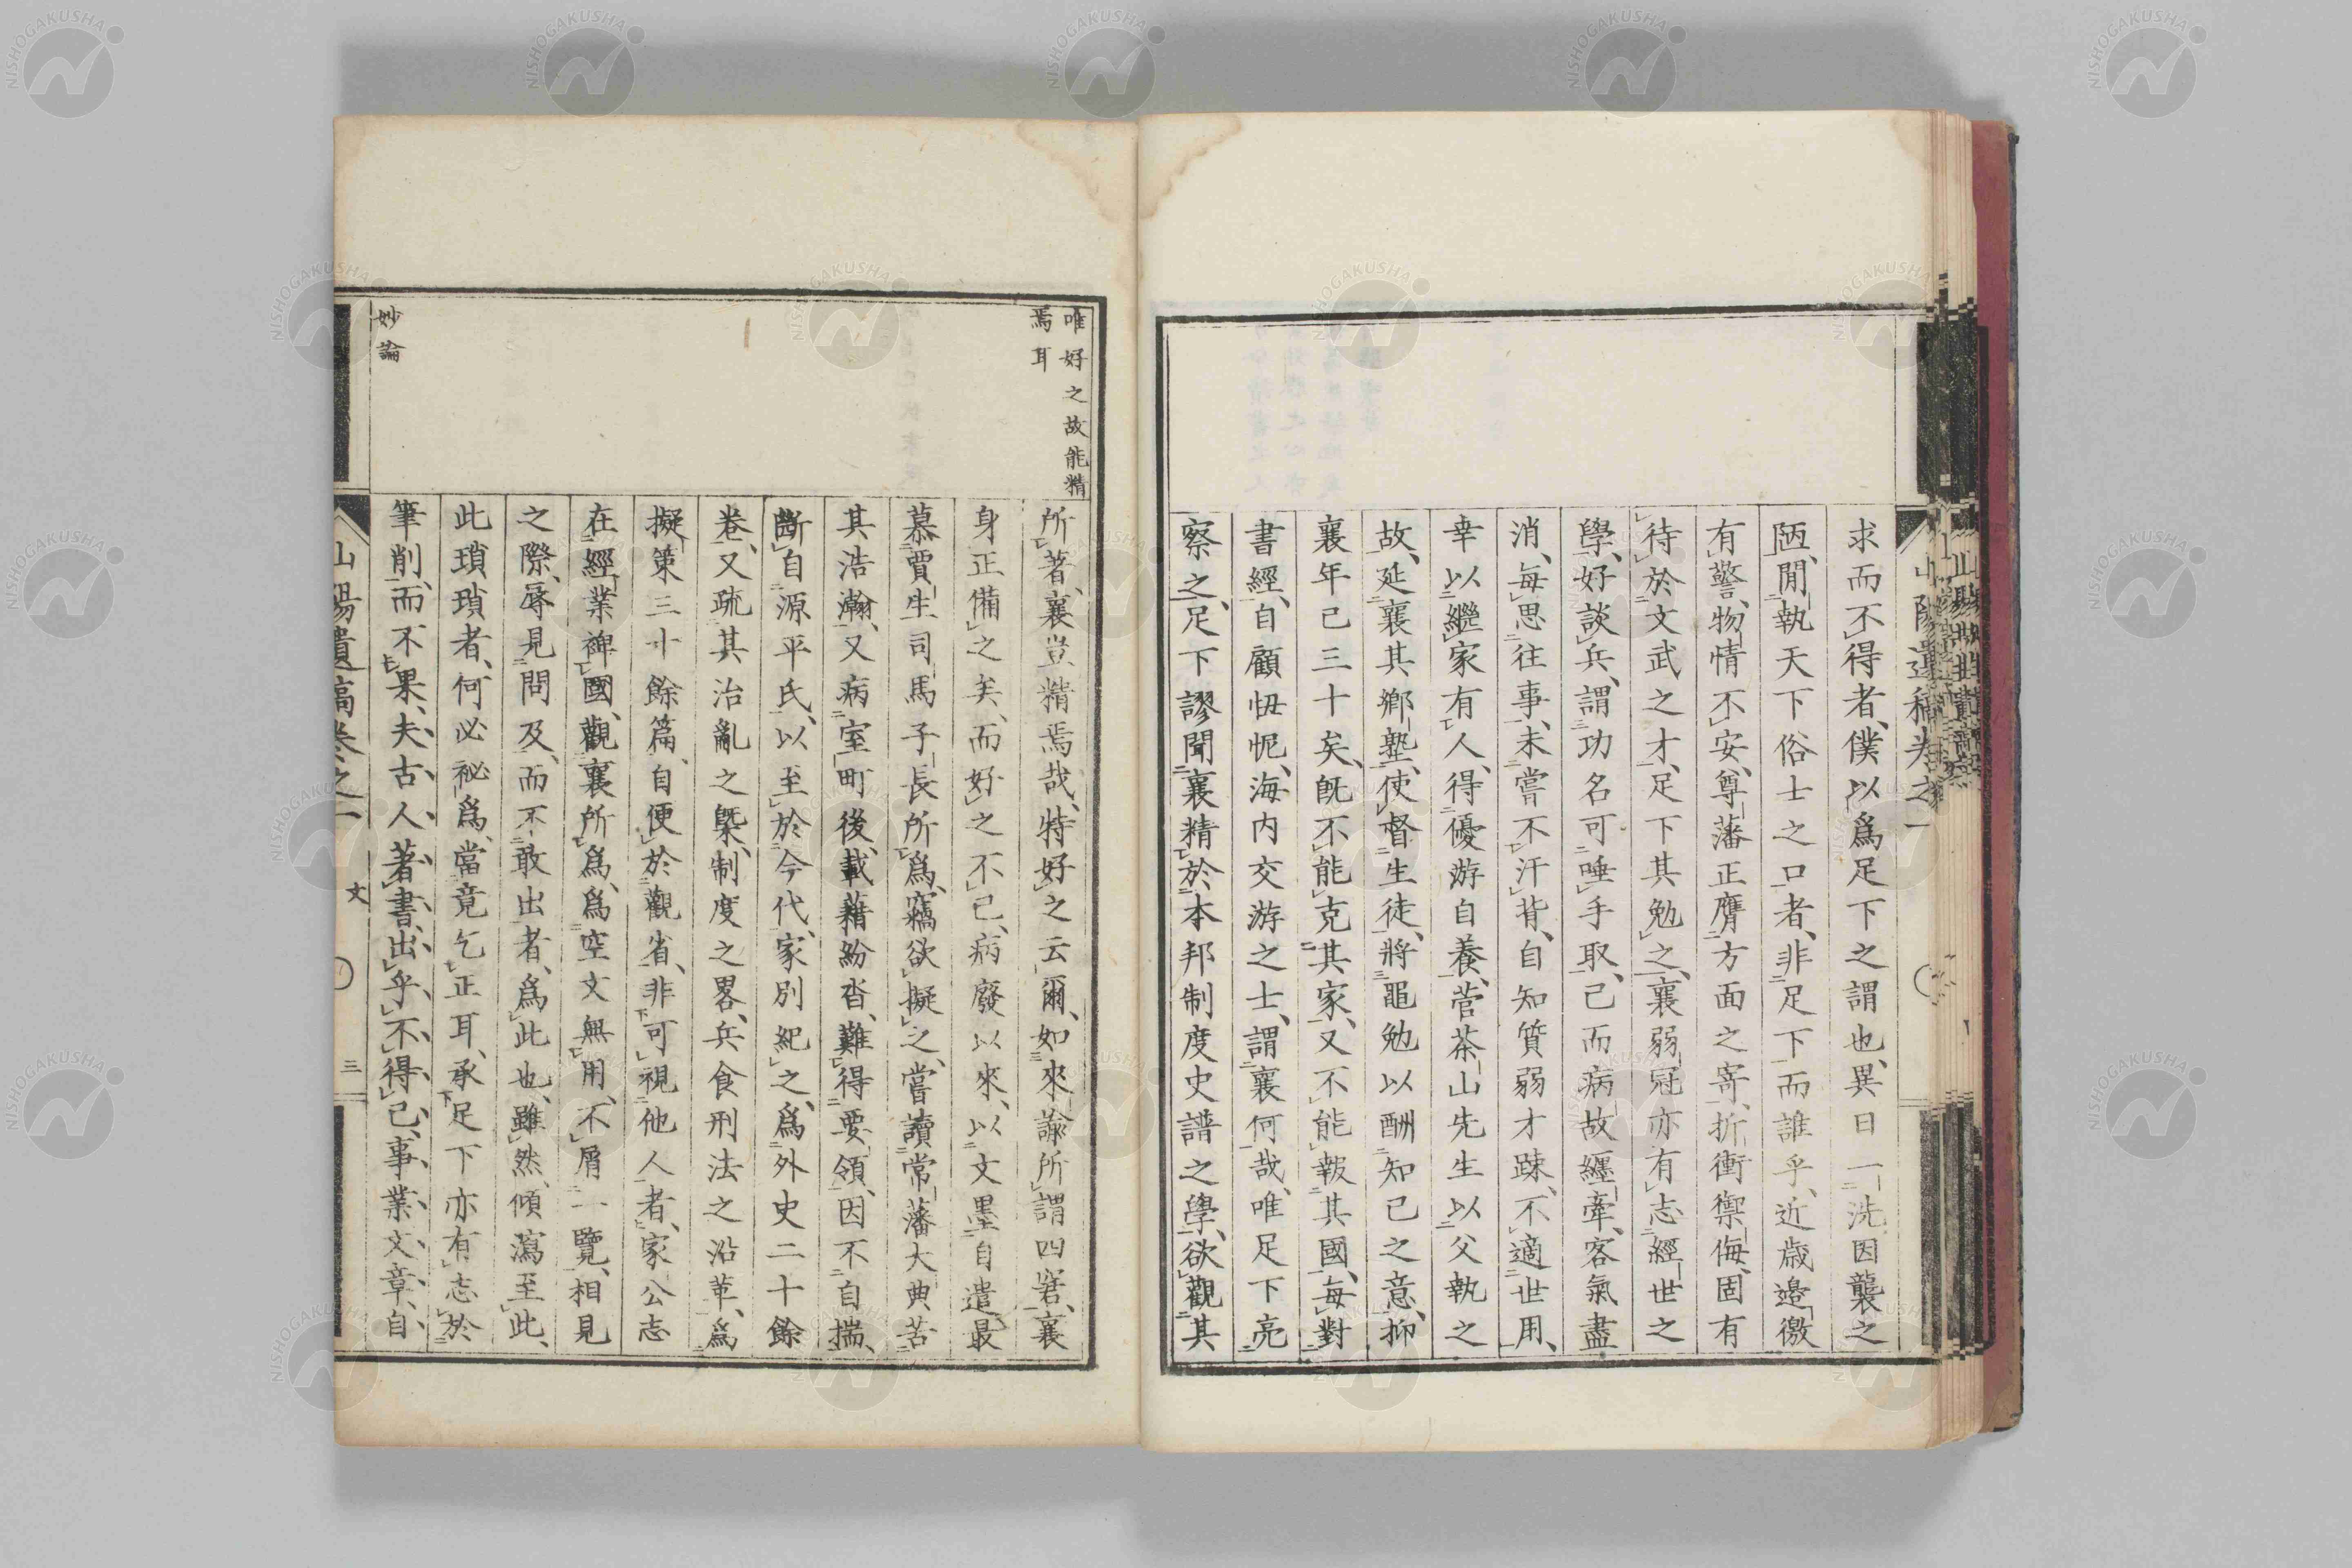 山陽遺稿卷之一
求而不得者、僕以爲足下之謂也、異日一洗因襲之
陋、間執天下俗士之口者、非足下而誰乎、近歲邊徼
有警、物情不安、尊藩正膺方面之寄、折衝禦侮、固有
待於文武之才、足下其勉之、襄弱冠亦有志經世之
學、好談兵、謂功名可唾手取、已而病故纏牽、客氣盡
消、每思往事、未嘗不汗背、自知質弱才踈、不適世用、
幸以繼家有人、得優游自養、菅茶山先生以父執之
故、延襄其鄉塾、使督生徒、將黽勉以酬知己之意、抑
襄年已三十矣、旣不能克其家、又不能報其國、每對
書經、自顧忸怩、海内交游之士、謂襄何哉、唯足下亮
察之、足下謬聞襄精於本邦制度史譜之學、欲觀其
唯好之故能精
焉耳
所著、襄豈精焉哉、特好之云爾、如來諭所謂四窘、襄
身正備之矣、而好之不已、病廢以來、以文墨自遣、最
慕賈生司馬子長所爲、竊欲擬之、嘗讀常藩大典、苦
其浩瀚、又病室町後、載籍紛沓、難得要領、因不自揣、
斷自源平氏、以至於今代、家別紀之、爲外史二十餘
卷、又疏其治亂之槩、制度之畧、兵食刑法之沿革、爲
擬策三十餘篇、自便於觀省、非可視他人者、家公志
在經業裨國、觀襄所爲、爲空文無用、不屑一覽、相見
之際、辱見問及、而不敢出者、爲此也、雖然、傾瀉至此、
此瑣瑣者、何必祕爲、當竟乞正耳、承足下亦有志於
妙論
筆削、而不果、夫古人著書、出乎不得已、事業文章、自
山陽遺稿卷之一
文
三